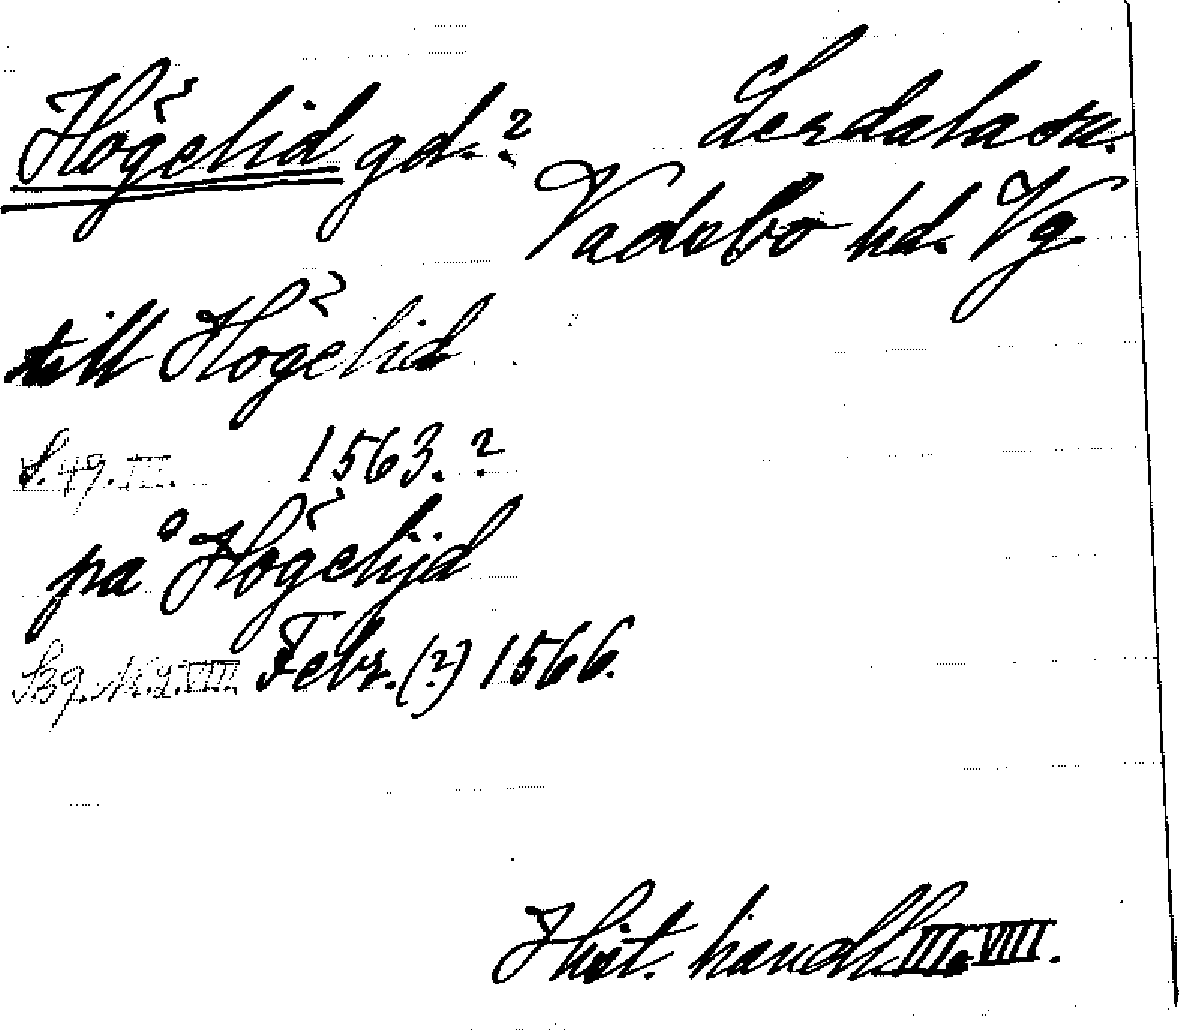 Högelid gd.? Lerdala sn.
Vadsbo hd. Vg
till Högelid
S. 49. III. 1563.?
på Högelijd
S. 39. N. 2. VIII. Febr. (?) 1566.
Hist. handl. III. VIII.